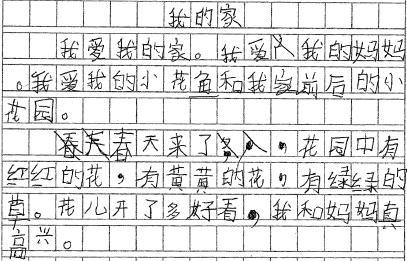 我的家
我爱我的家。我爱我的妈妈
。我爱我的小花鱼和我家前后的小
花园。
春天来了，花园中有
红红的花，有黄黄的花，有绿绿的
草。花儿开了多好看，我和妈妈真
高兴。